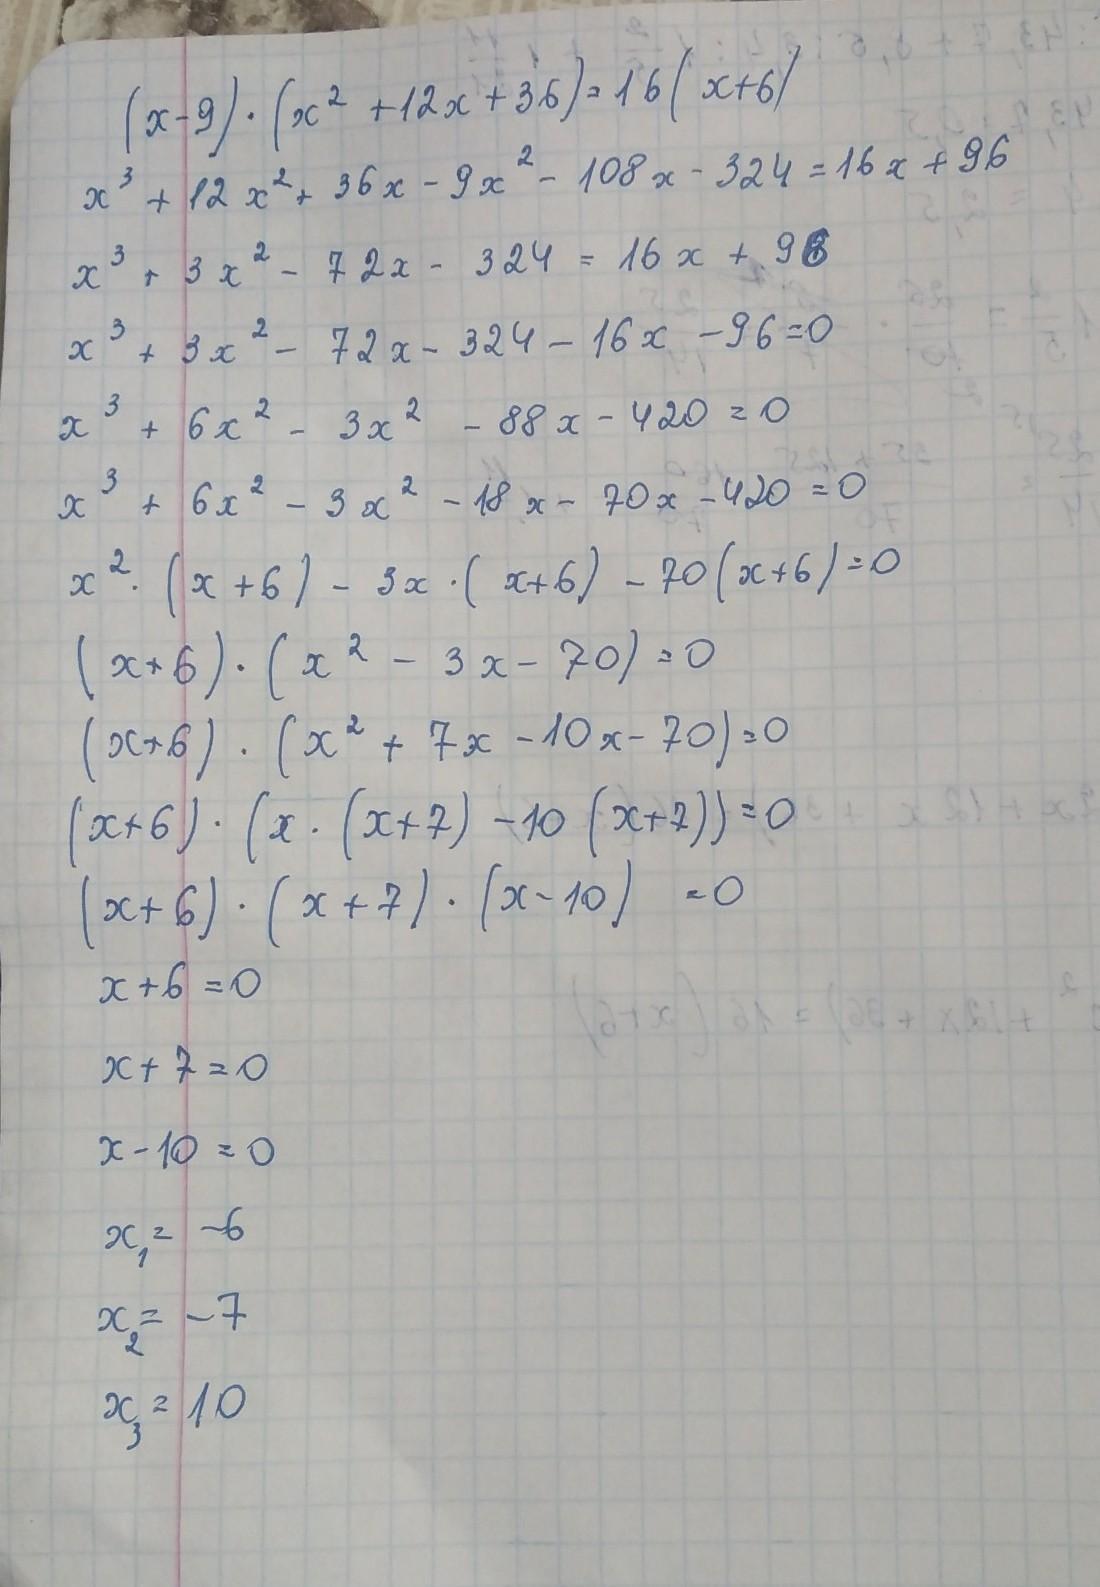 (x-9)·(x² +12x+36)=16(x+6)
x³ + 12x² + 36x - 9x² - 108x - 324 = 16x + 96
x³ + 3x² - 72x - 324 = 16x + 96
x³ + 3x² - 72x - 324 - 16x - 96 = 0
x³ + 6x² - 3x² - 88x - 420 = 0
x³ + 6x² - 3x² - 18x - 70x - 420 = 0
x²·(x+6) - 3x·(x+6) - 70(x+6) = 0
(x+6)·(x² - 3x - 70) = 0
(x+6)·(x² + 7x - 10x - 70) = 0
(x+6)·(x·(x+7) - 10(x+7)) = 0
(x+6)·(x+7)·(x-10) = 0
x+6=0
x+7=0
x-10=0
x₁= -6
x₂= -7
x₃= 10